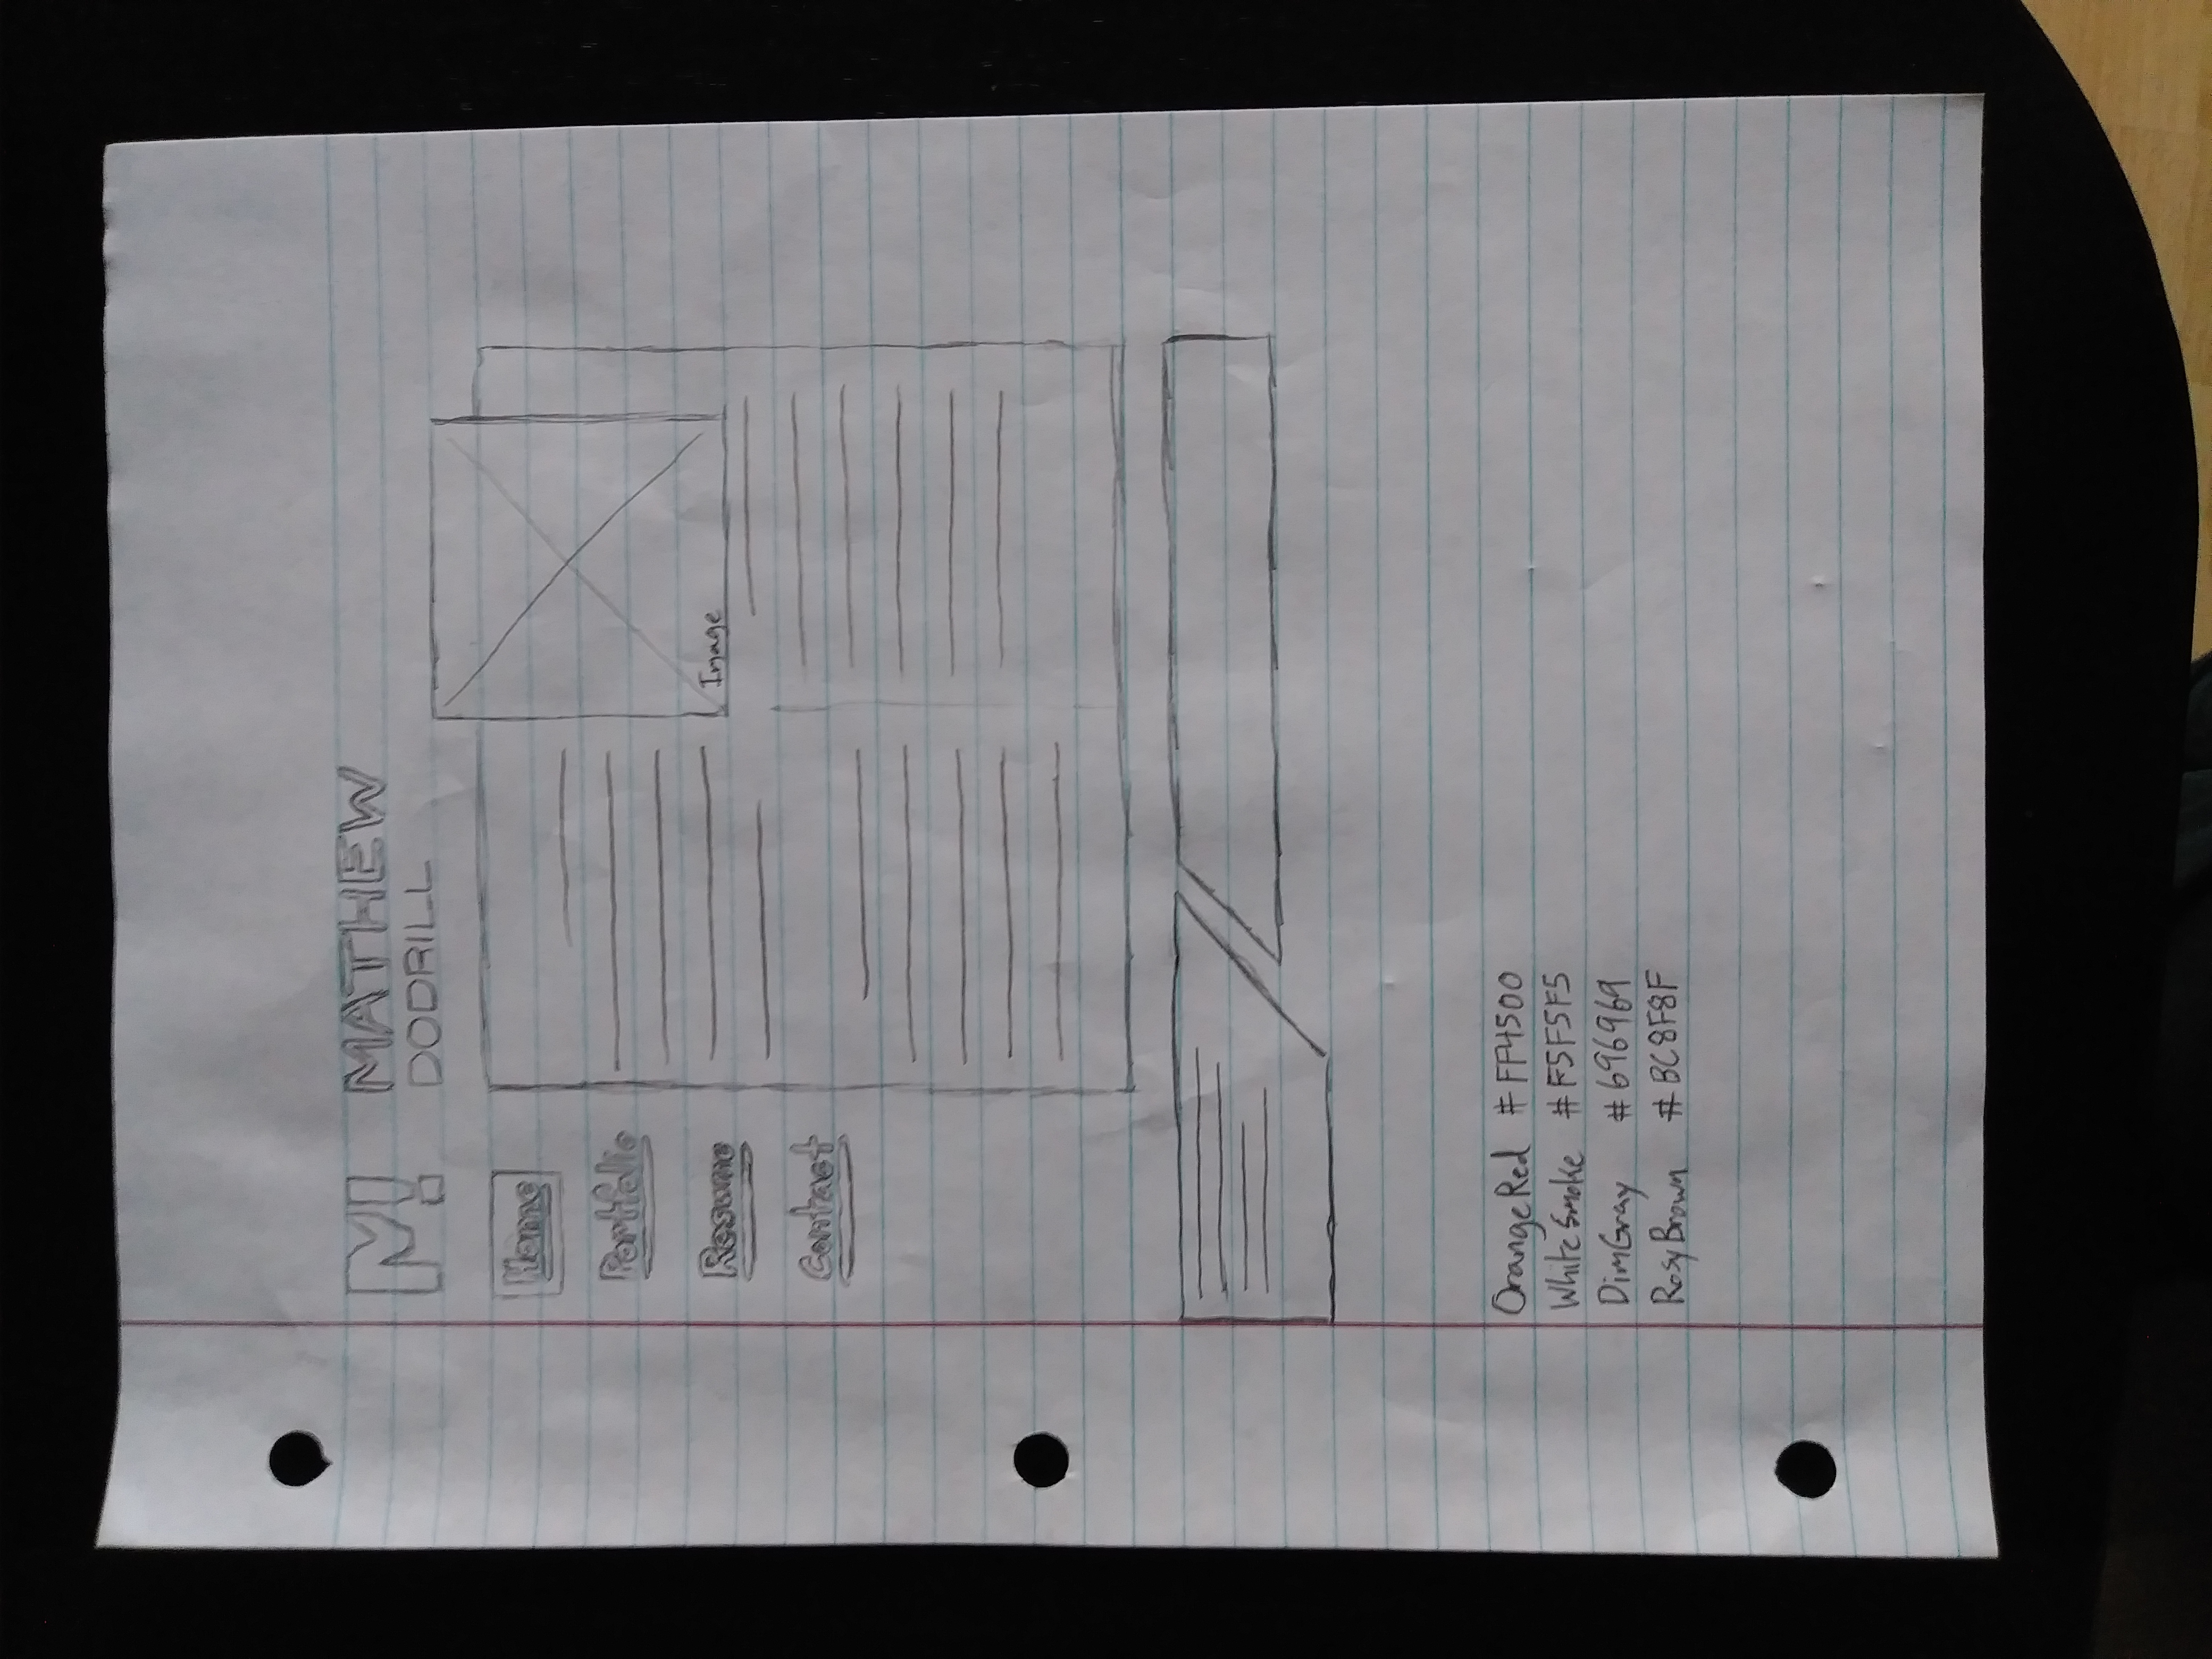 M! MATHEW
DODRILL
Home
Portfolio
Resume
Contact
Image
OrangeRed #FF4500
WhiteSmoke #F5F5F5
DimGray #696969
RosyBrown #BC8F8F